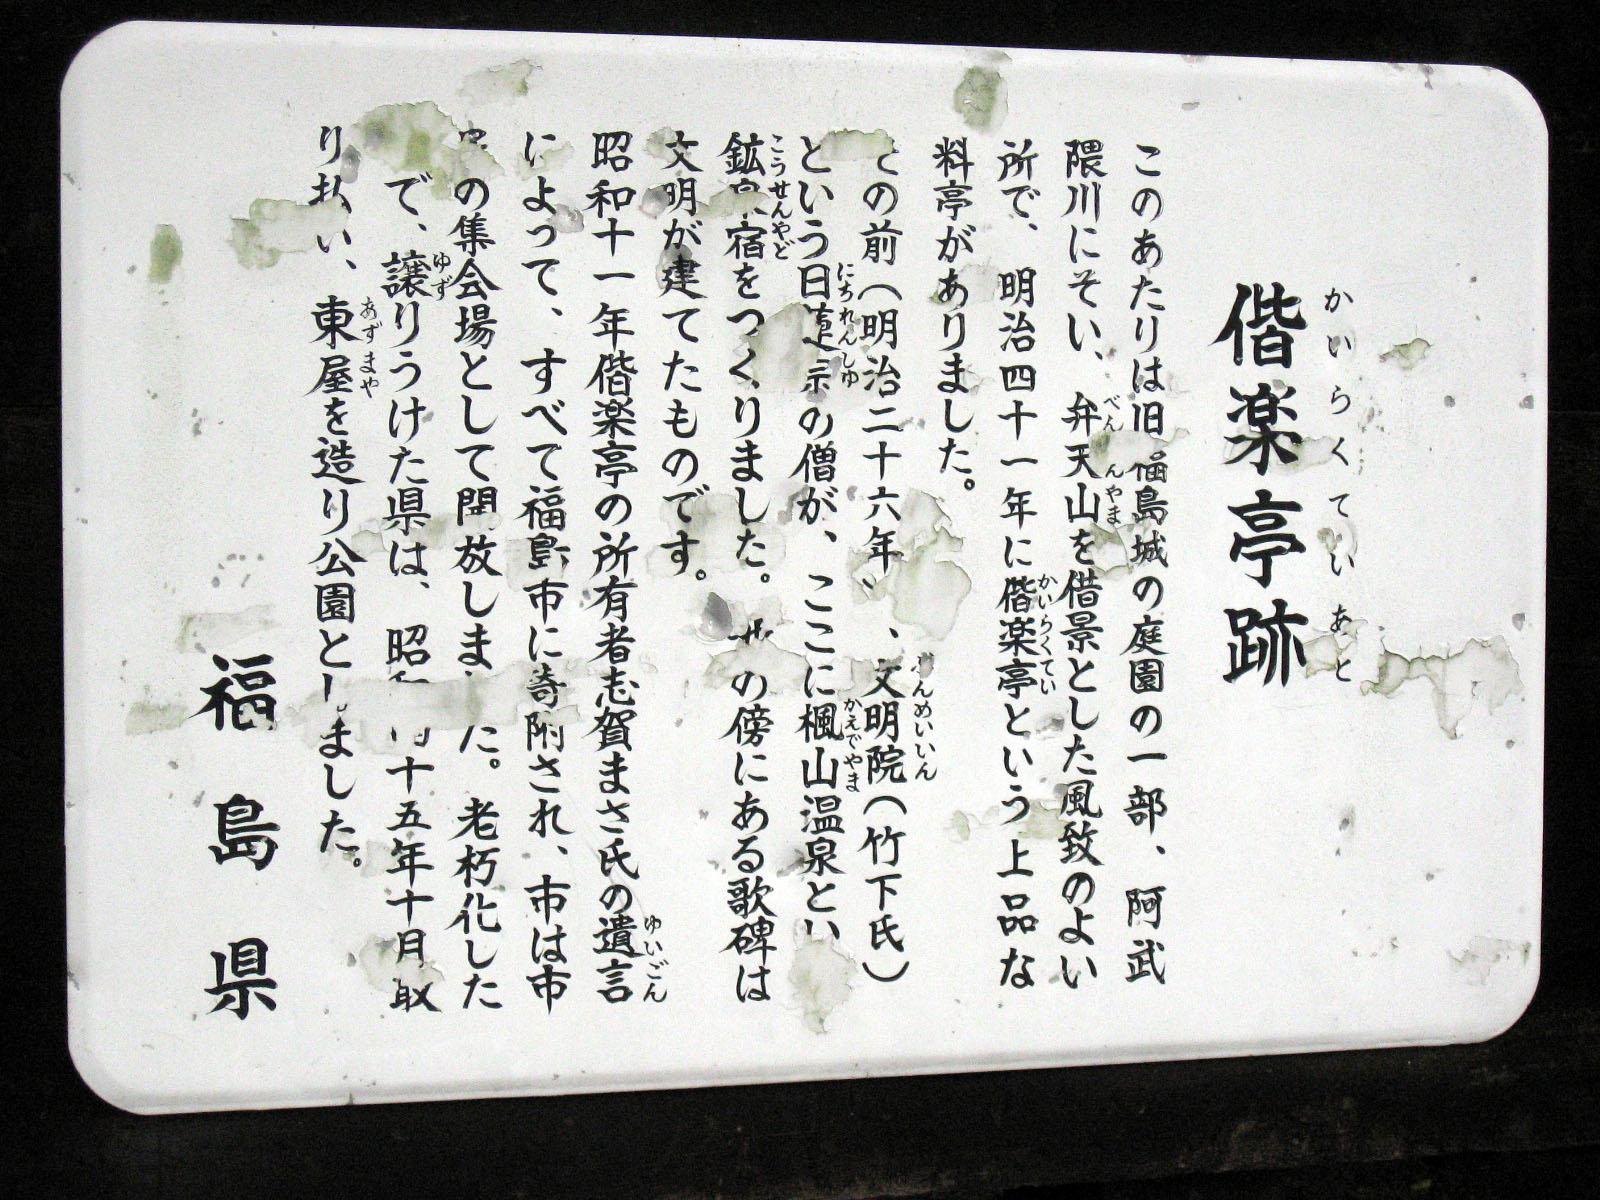 かいらくていあと
偕楽亭跡
このあたりは旧福島城の庭園の一部、阿武
隈川にそい、弁天山を借景とした風致のよい
べん んやま
所で、明治四十一年に偕楽亭という上品な
かいらくてい
料亭がありました。
の前(明治二十六年)、文明院(竹下氏)
んめいいん
という日蓮宗の僧が、ここに楓山温泉とい
にちれんしゅ
かえでやま
鉱泉宿をつくりました。 の傍にある歌碑は
こうせんやど
文明が建てたものです。
昭和十一年偕楽亭の所有者志賀まさ氏の遺言
ゆいごん
によって、すべて福島市に寄附され、市は市
の集会場として開放しました。老朽化した
で、譲りうけた県は、昭和 十五年十月取
ゆず
り払い、東屋を造り公園としました。
あずまや
福島県